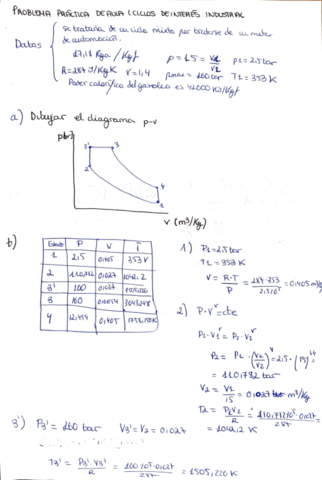 PROBLEMA PRÁCTICA DE AULA CICLOS DE INTERÉS INDUSTRIAL
Datos
se trataría de un ciclo mixto por tratarse de un motor
de automoción.
17,18 Kga/Kgf P=15=V1/V2 P1=2,5bar
R=287 J/KgK γ=1,4 Pmax=160bar T1=353K
Poder calorífico del gasóleo es 42000 KJ/Kgf
a) Dibujar el diagrama p-v
3'
3
2
4
1
V (m3/Kg)
b)
Estado P V T
1 2,5 0,405 353K
2 110,782 0,027 1042,2
3' 100 0,027
3 160
4 0,405
1) P1=2,5bar
T1=353K
V = R·T/P = 287·353/2,5·10⁵ = 0,405 m³/Kg
2) P·Vʳ=cte
P1·V1ʳ = P2·V2ʳ
P2 = P1·(V1/V2)ʳ = 2,5·(15)¹'⁴
= 110,782 bar
V2 = V1/15 = 0,027 m³/Kg
T2 = P2V2/R = 110,782·10⁵·0,027/287 =
= 1042,2 K
3') P3' = 160 bar V3'=V2=0,027
T3' = P3'·V3'/R = 100·10⁵·0,027/287 = 1505,226 K